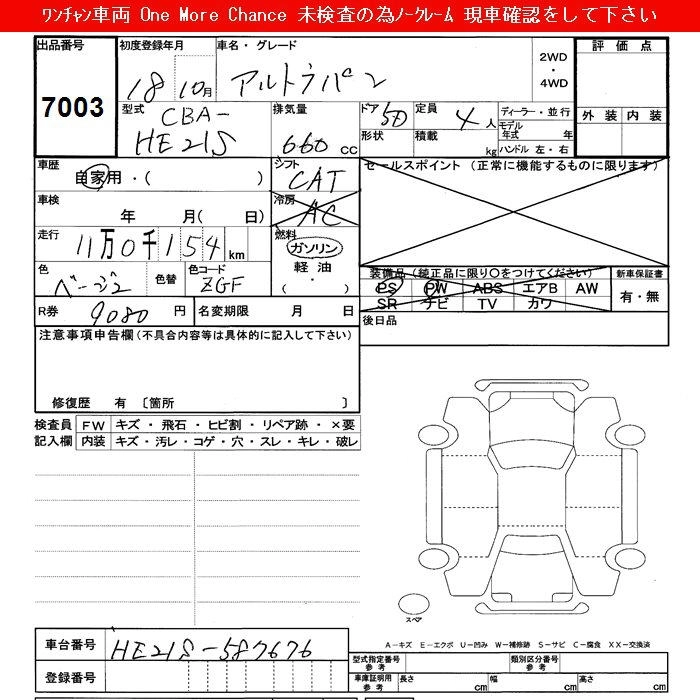 ﾜﾝﾁｬﾝ車両 One More Chance 未検査の為ﾉｰｸﾚｰﾑ 現車確認をして下さい
出品番号 初度登録年月 車名・グレード 評価点
7003 18 10月 アルトラパン 2WD・4WD
外装 内装
型式 CBA-HE21S 排気量 660 CC ドア 5D 定員 4人 ディーラー・並行
形状 積載 kg モデル年式 年
ハンドル 左・右
車歴 自家用・( ) シフト CAT セールスポイント (正常に機能するものに限ります)
車検 年 月( 日) 冷房 AC
走行 11万0千154km 燃料 ガソリン
軽油
・( )・
色 ベージュ 色替 色コード ZGF
装備品 (純正品に限り○をつけてください) 新車保証書
PS PW ABS エアB AW 有・無
SR ナビ TV カワ
R券 9080円 名変期限 月 日 後日品
注意事項申告欄(不具合内容等は具体的に記入して下さい)
修復歴 有 〔箇所 〕
検査員 FW キズ・飛石・ヒビ割・リペア跡・×要
記入欄 内装 キズ・汚レ・コゲ・穴・スレ・キレ・破レ
スペア
A－キズ E－エクボ U－凹み W－補修跡 S－サビ C－腐食 XX－交換済
車台番号 HE21S-587676
型式指定番号 参考 類別区分番号 参考
登録番号
車庫証明用 参考 長さ cm 幅 cm 高さ cm